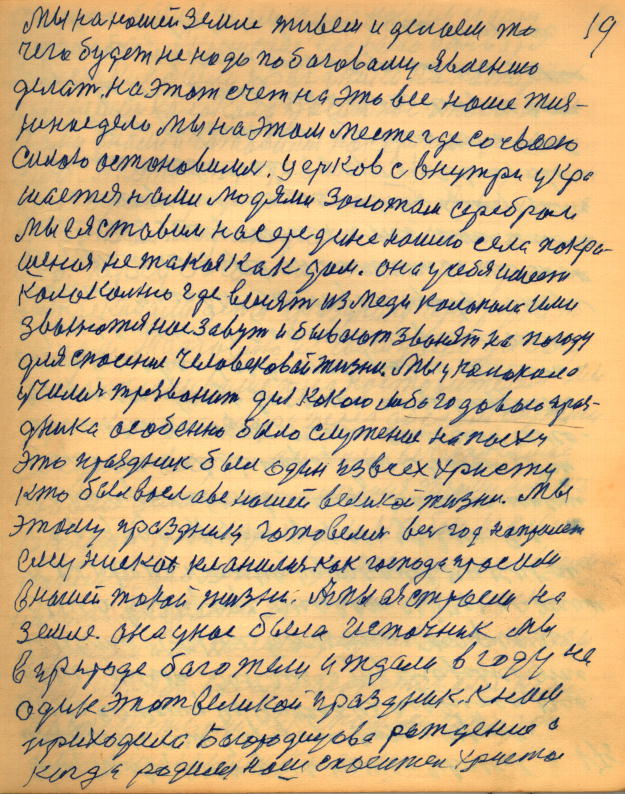 19
Мы на нашей земле живем и делаем то
чего будет не надо по баговому явленью
делат. на этот счет на это все наше тия-
мы на этом месте где со своею
силою остановимя. церков с внутри укра
шается нами людями золотам серебром
мы ея ставим на середине нашго села покра-
шеная не такая как дом. она у себя имеет
Колокольню где висят из меди колокола ими
звынотя нас завут и бывают звонят на погоду
для спасение человековай жизни. Мы у колокола
училия трезвонит для кокого либо годового праз-
дника особенно было служение на паску
это праздник был один из всех христу
кто был вославе нашей великой жизни. Мы
этому празднику готовелия вен год напролет
ему ниско кланялия как господа просили
в нашей токой жизни. А мы ея строели на
земле. она у нас была источник мы
в природе баготели и ждали в году не
один этот великой праздник. К ним
приходила Багородицова раждение
когда родиля нош спаситель христос